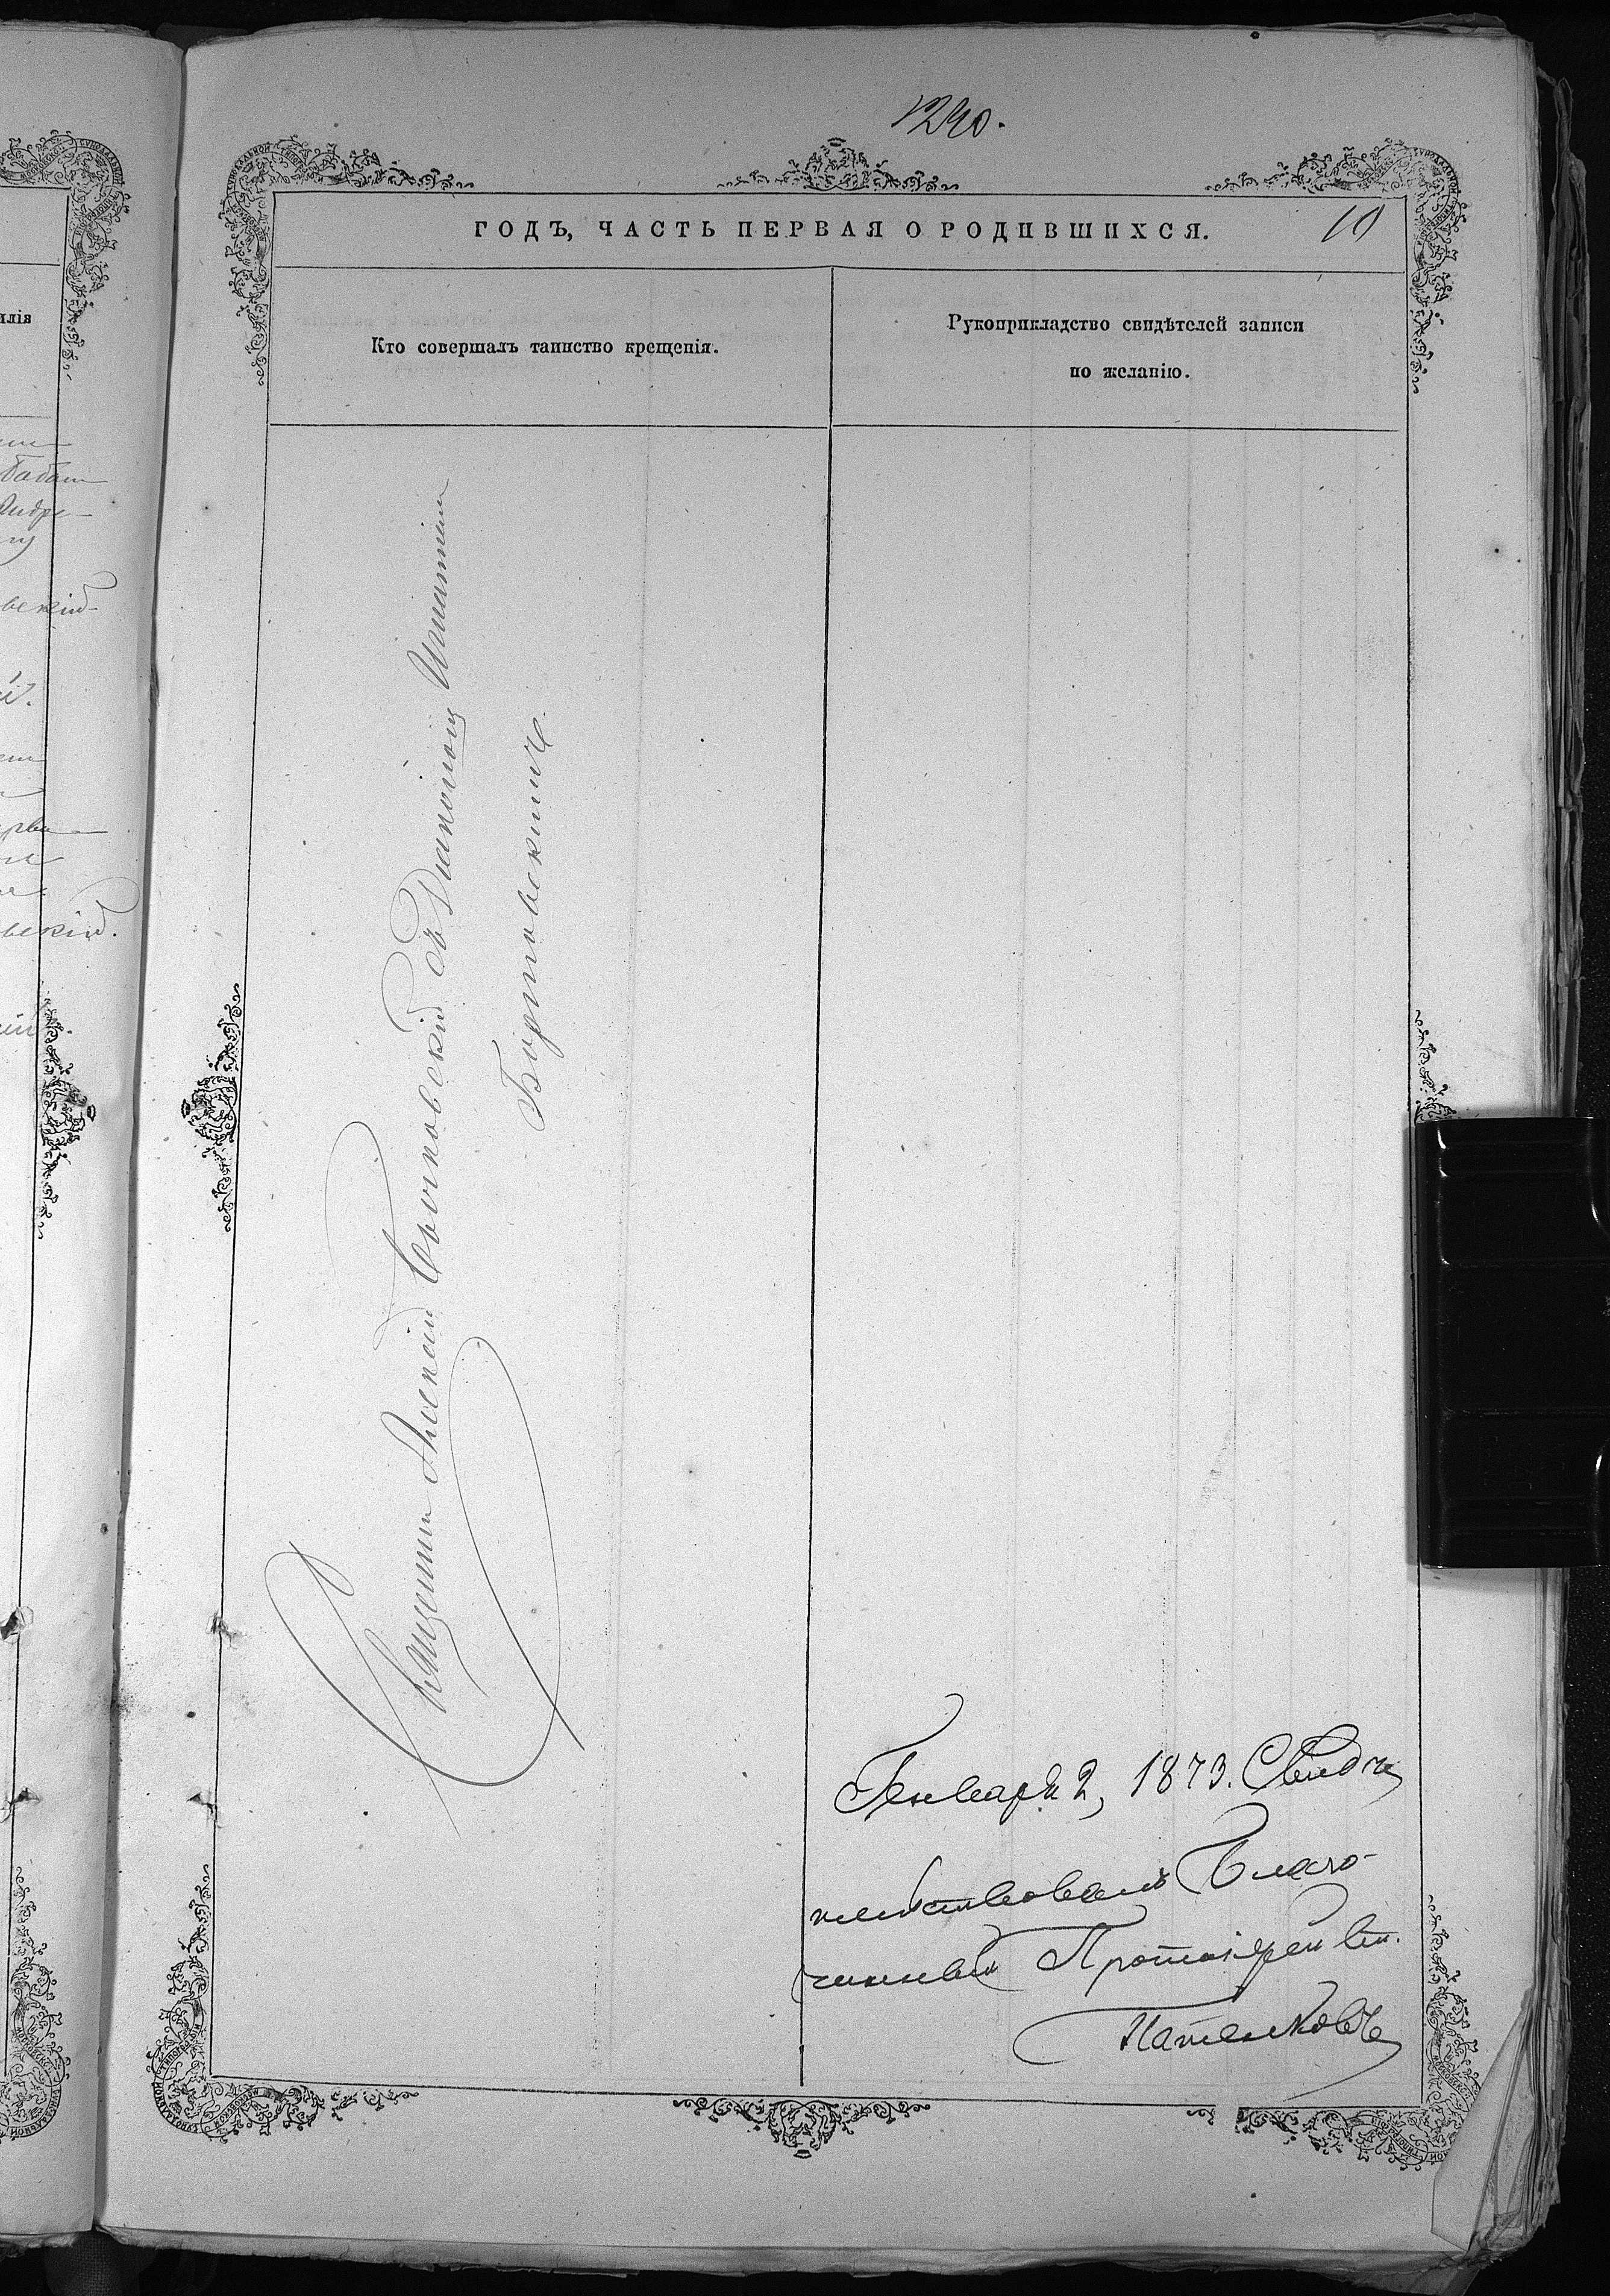 1240.
ГОДЪ, ЧАСТЬ ПЕРВАЯ О РОДИВШИХСЯ.
10
Кто совершалъ таинство крещенія.
Рукоприкладство свидѣтелей записи
по желанію.
Священник Алексій съ Діаконом Игнатіем
Бортновскимъ.
Генваря 2, 1873. Свидѣ
тельствовалъ Благо-
чинный Протоіерей